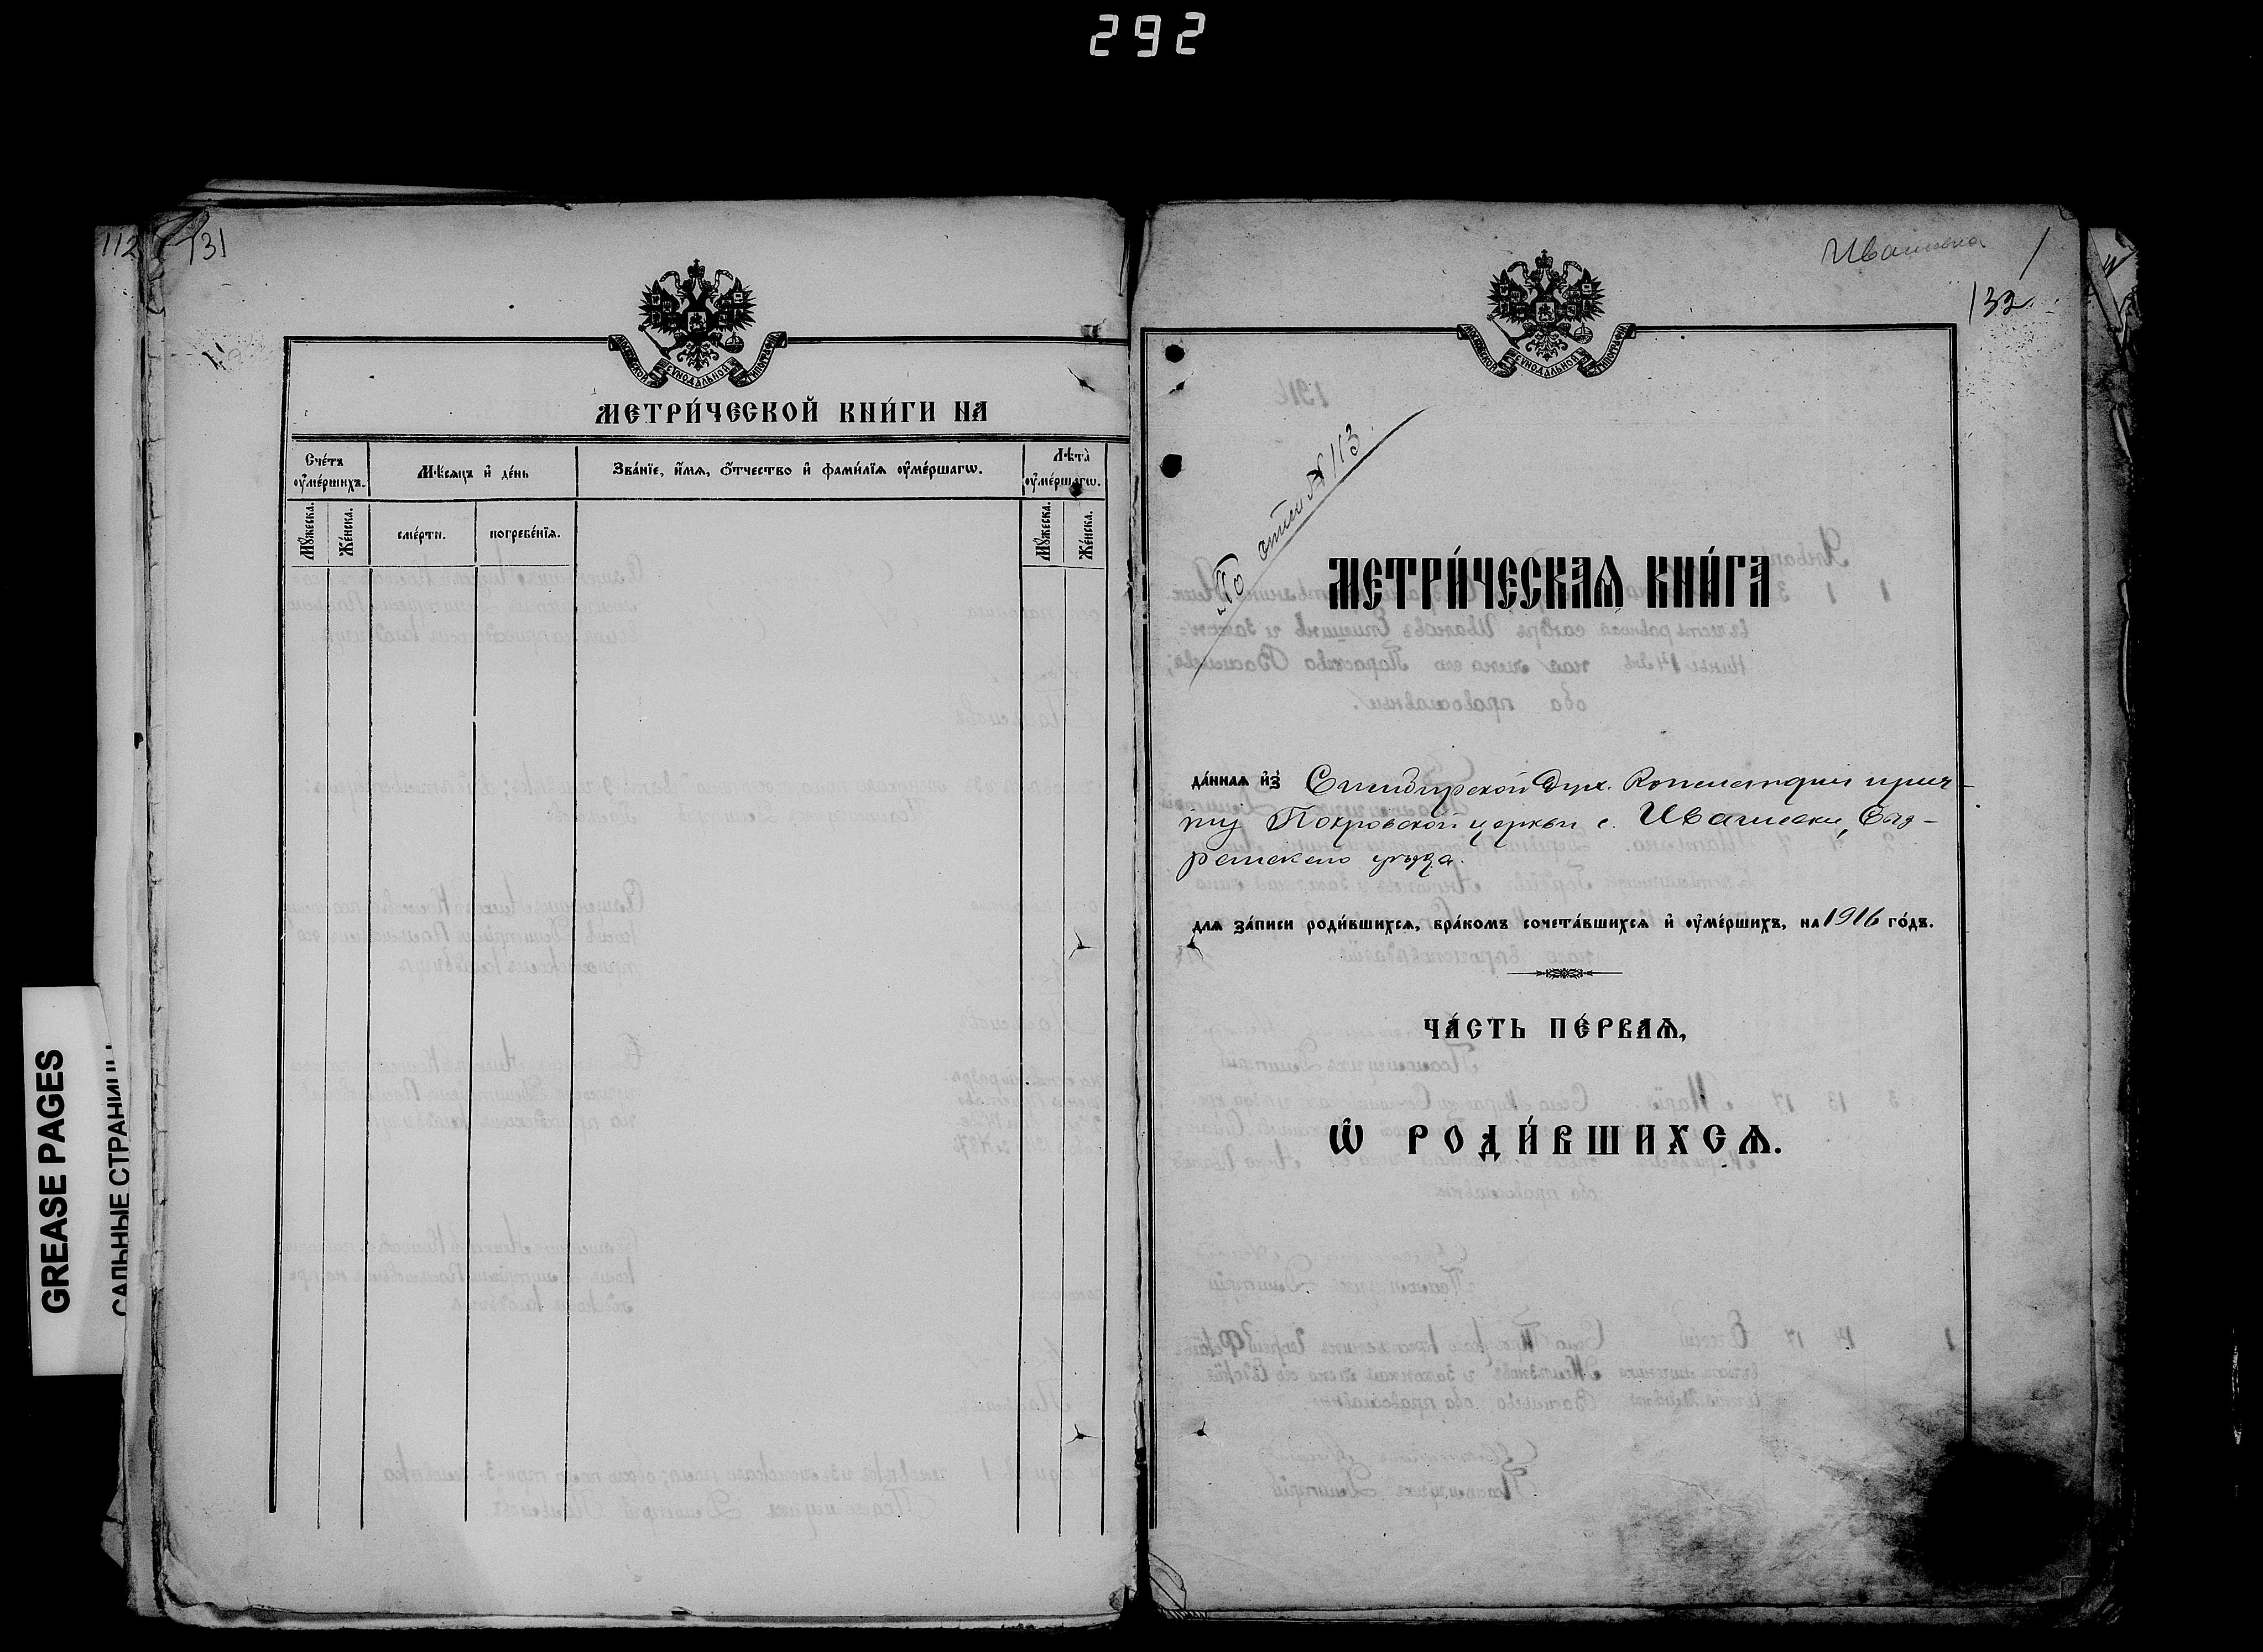 292
112
131
МОСКОВСКОЙ СѴНОДАЛЬНОЙ ТИПОГРАФІИ
МЕТРИ́ЧЕСКОЙ КНИ́ГИ НА
Сче́тъ ᲂу҆ме́ршихъ.
Мѣ́сяцъ и҆ де́нь
Зва́нїе, и҆́мѧ, ѻ҆́тчество и҆ фами́лїѧ ᲂу҆ме́ршагѡ.
Лѣ̀та ᲂу҆ме́ршагѡ.
Мꙋ́жеска.
Же́нска.
сме́рти.
погребе́нїѧ.
Мꙋ́жеска.
Же́нска.
Ивашевка
1
132
МОСКОВСКОЙ СѴНОДАЛЬНОЙ ТИПОГРАФІИ
По описи № 113
МЕТРИ́ЧЕСКАѦ КНИ́ГА
да́ннаѧ и҆з̾ Симбирской Дух. Консисторіи прич-
ту Покровской церкви с. Ивашевки, Сыз-
ранскаго уѣзда.
длѧ за́писи роди́вшихсѧ, бра́комъ сочета́вшихсѧ и҆ ᲂу҆ме́ршихъ, на 1916 го́дъ.
ЧА́СТЬ ПЕ́РВАѦ,
Ѡ҆ РОДИ́ВШИХСѦ.
GREASE PAGES
САЛЬНЫЕ СТРАНИЦЫ